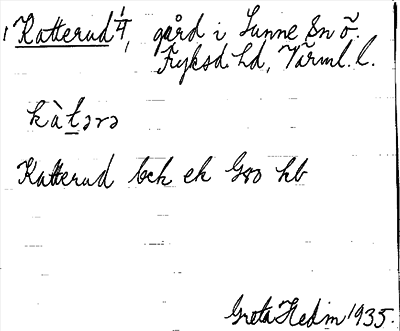 1 Katterud 1/4, gård i Sunne Sn ö.
Fryksd. hd, Värml. l.
kàtərə
Katterud bck ek G80 hb
Greta Hedin 1935.